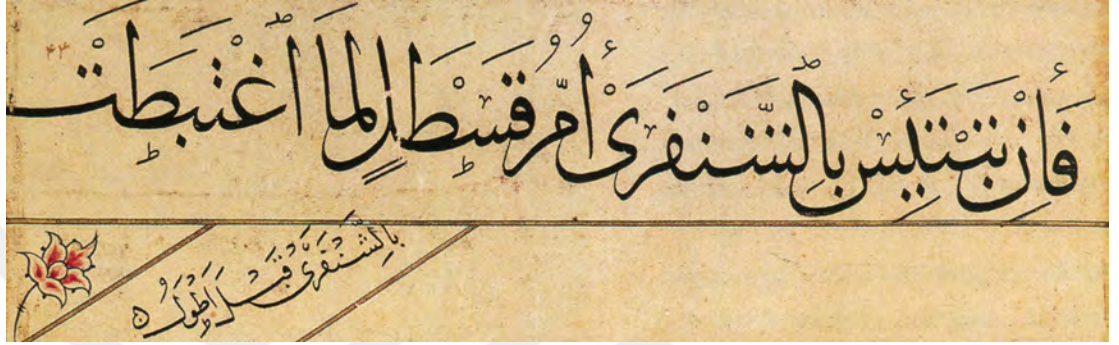 فَإِنْ تَبْتَئِسْ بِالشَّنْفَرَىٰ أُمُّ قَسْطَلٍ لَمَا اغْتَبَطَتْ
بِالشَّنْفَرَى قَبْلُ أَطْوَلُ